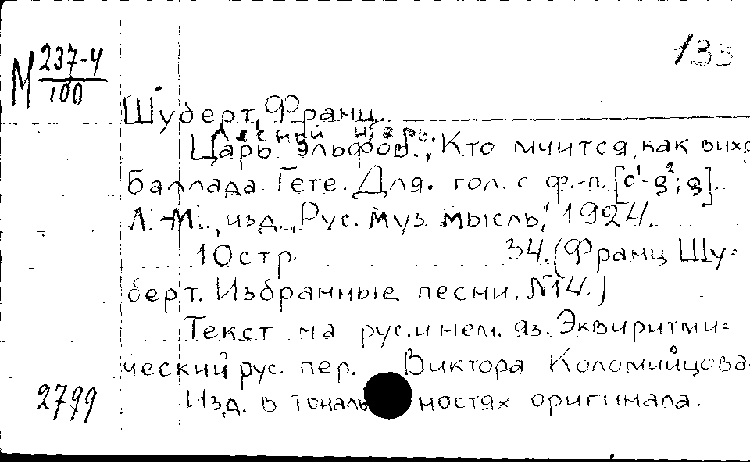 133
М 237-4
100
Шуберт, Франц.
Лесной царь.
Царь эльфов. ; Кто мчится, как вихо
баллада. Гете. Для гол. с ф.-п. [c¹-g²; g].
Л.-М., изд. „Рус. муз. мысль," 1924.
10 стр. 34. (Франц Шу-
берт. Избранные песни. №14.)
Текст на рус. и нем. яз. Эквиритми-
ческий рус. пер. Виктора Коломийцова
2799 Изд. в тональностях оригинала.